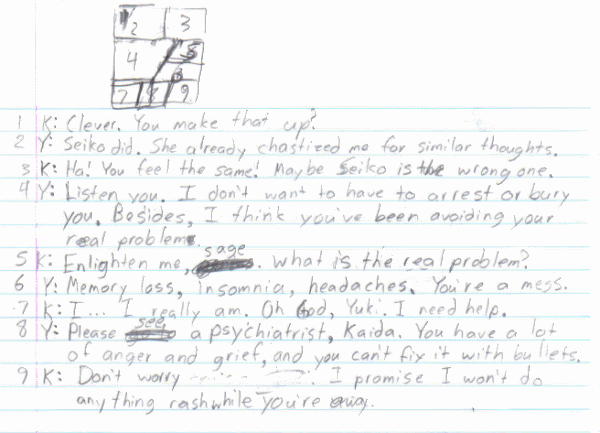 1 2 3
4 5
6
7 8 9
1 K: Clever. You make that up?
2 Y: Seiko did. She already chastized me for similar thoughts.
3 K: Ha! You feel the same! Maybe Seiko is the wrong one.
4 Y: Listen you. I don't want to have to arrest or bury
you. Besides, I think you've been avoiding your
real problem.
5 K: Enlighten me, sage. What is the real problem?
6 Y: Memory loss, insomnia, headaches. You're a mess.
7 K: I... I really am. Oh God, Yuki. I need help.
8 Y: Please see a psychiatrist, Kaida. You have a lot
of anger and grief, and you can't fix it with bullets.
9 K: Don't worry. I promise I won't do
anything rash while you're away.